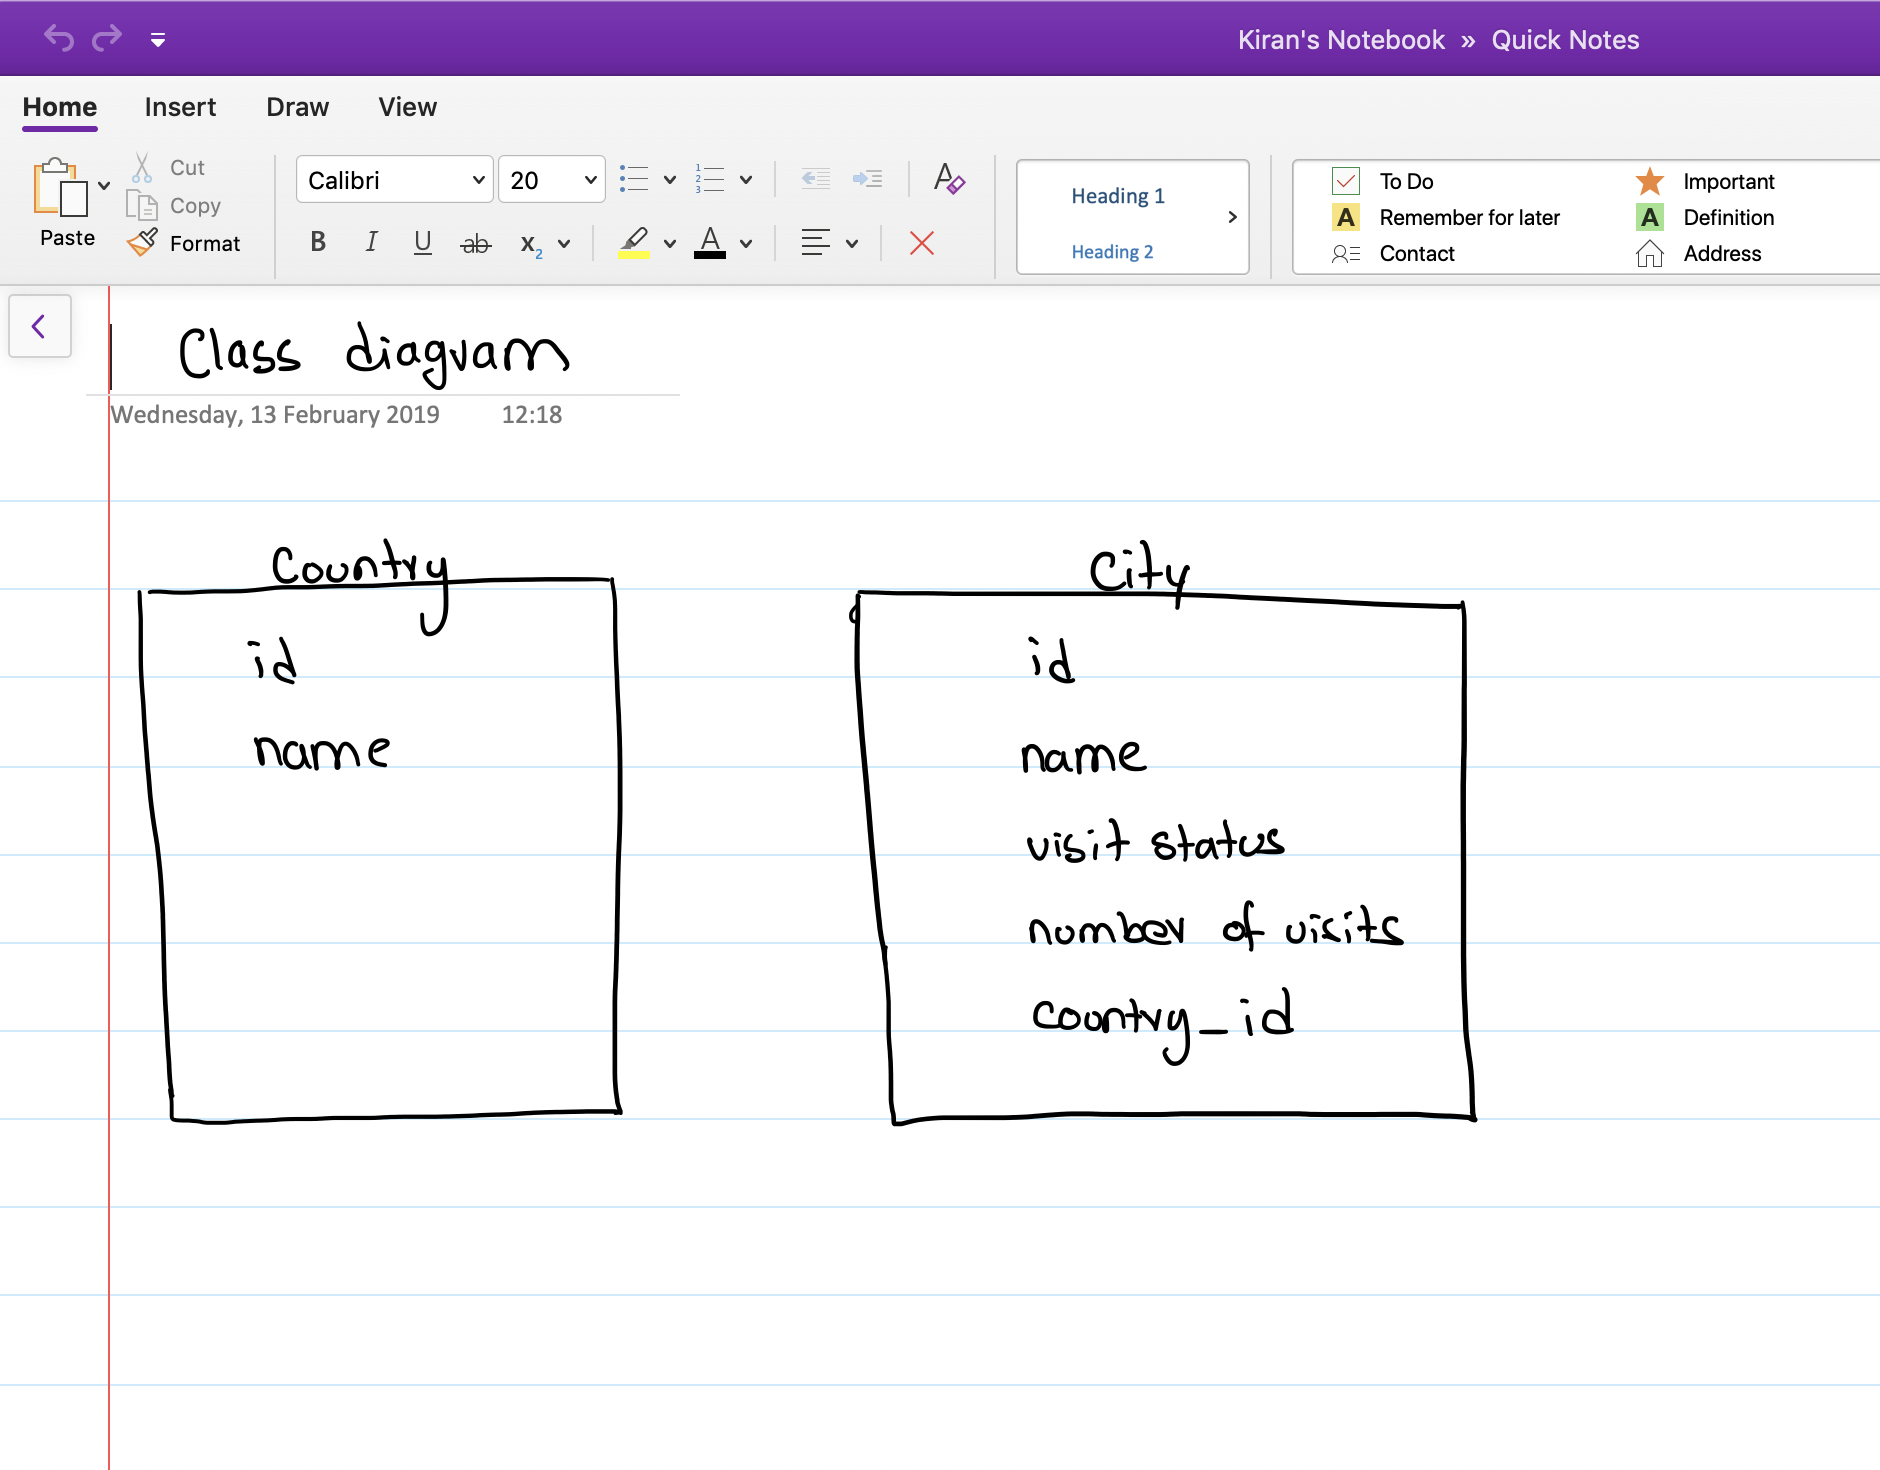 Kiran's Notebook » Quick Notes
Home Insert Draw View
Paste
Cut
Copy
Format
Calibri 20
B I U ab X2 A
Heading 1
Heading 2
To Do
Remember for later
Contact
Important
Definition
Address
Class diagram
Wednesday, 13 February 2019 12:18
Country
id
name
City
id
name
visit status
number of visits
country_id